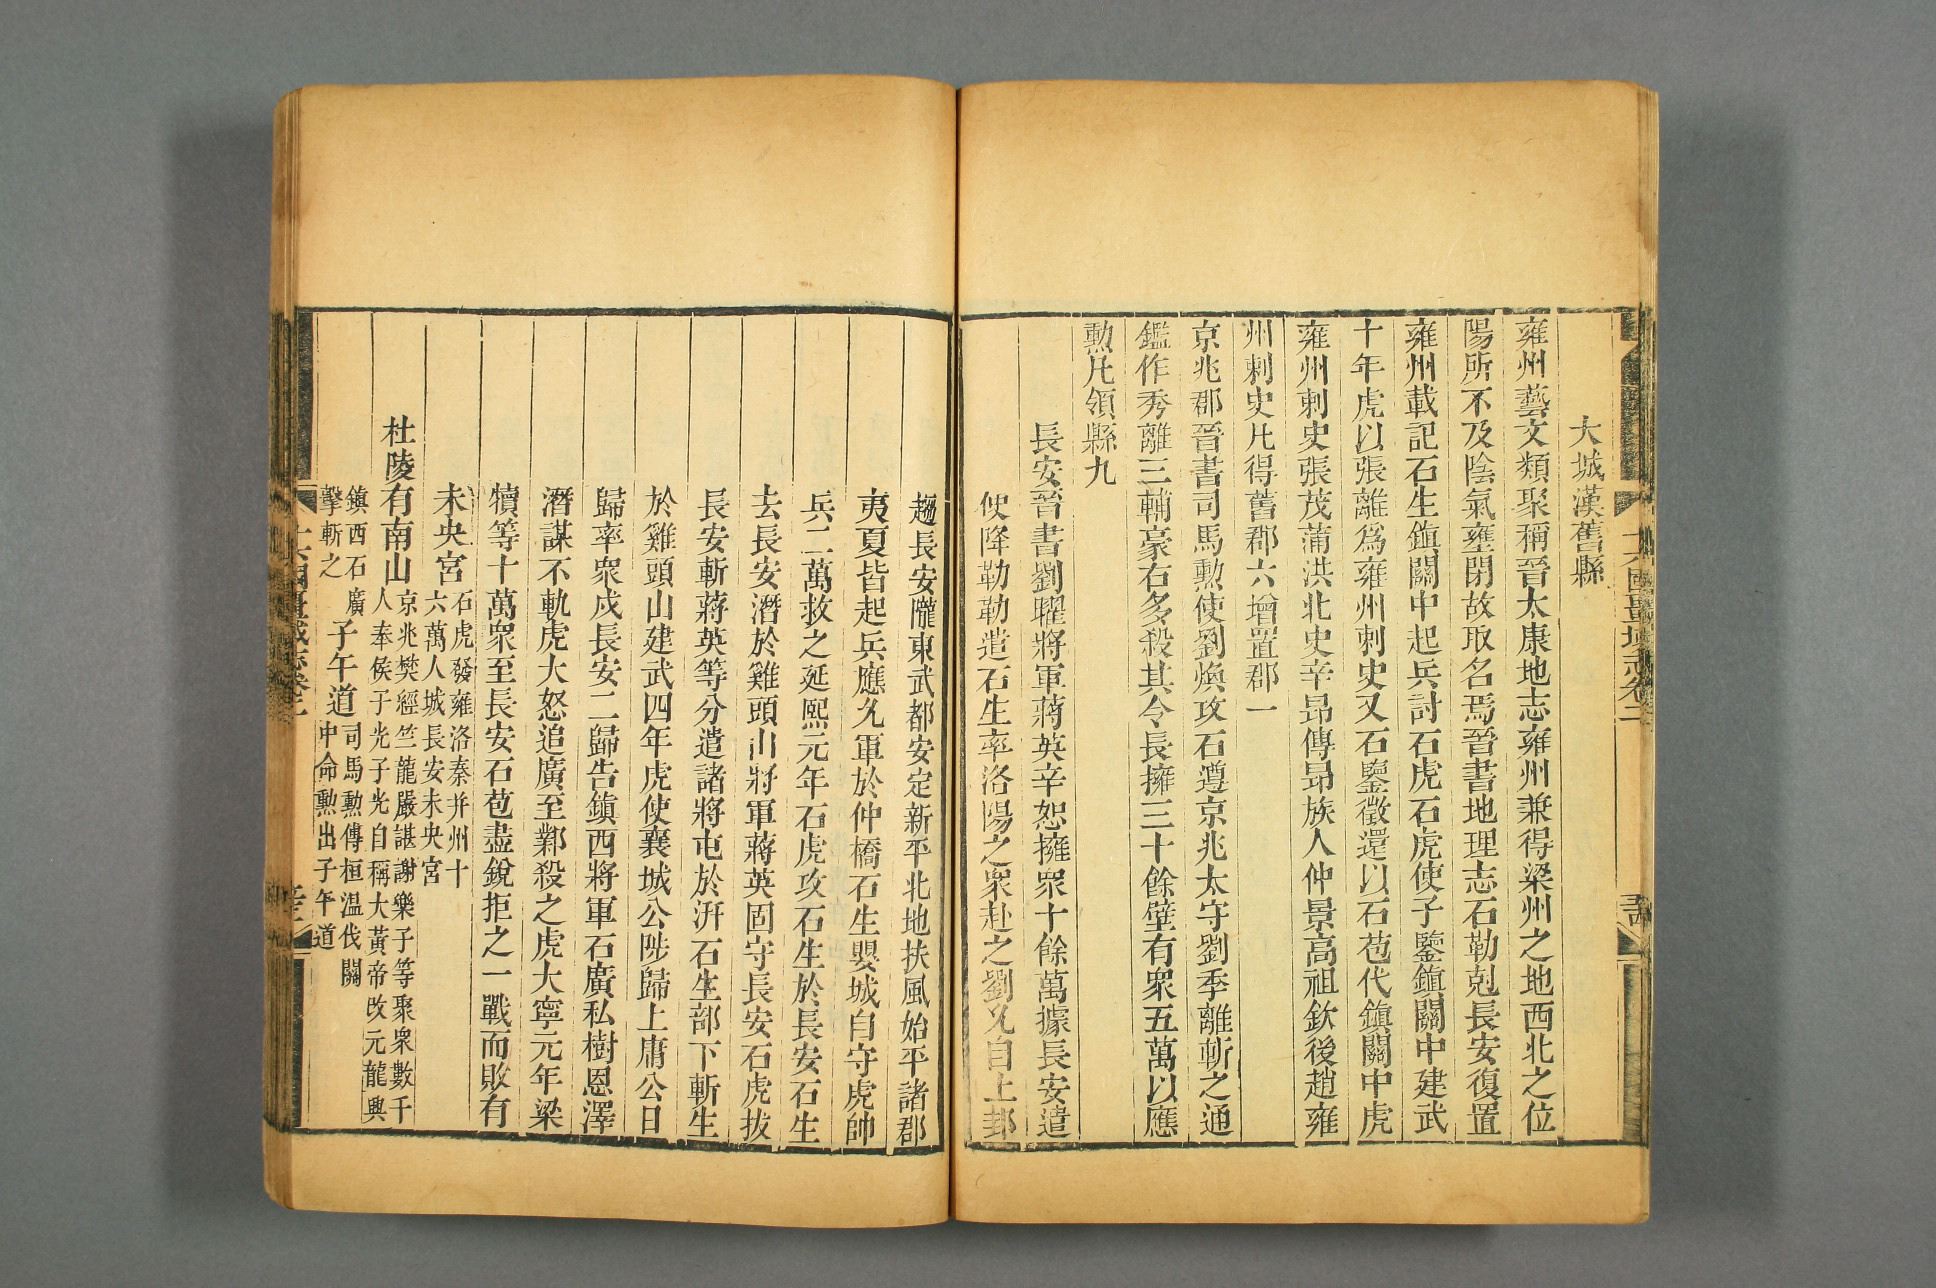 大城漢舊縣
雍州藝文類聚稱晉太康地志雍州兼得梁州之地西北之位
陽所不及陰氣壅閉故取名焉晉書地理志石勒剋長安復置
雍州載記石生鎮關中起兵討石虎石虎使子鑒鎮關中建武
十年虎以張離爲雍州刺史又石鑒徵還以石苞代鎮關中虎
雍州刺史張茂蒲洪北史辛昂傳昂族人仲景高祖欽後趙雍
州刺史凡得舊郡六增置郡一
京兆郡晉書司馬勲使劉煥攻石遵京兆太守劉季離斬之通
鑑作秀離三輔豪右多殺其令長擁三十餘壁有衆五萬以應
勲凡領縣九
長安晉書劉曜將軍蔣英辛恕擁衆十餘萬據長安遣
使降勒勒遣石生率洛陽之衆赴之劉允自上邽
趨長安隴東武都安定新平北地扶風始平諸郡
夷夏皆起兵應允軍於仲橋石生嬰城自守虎帥
兵二萬救之延熙元年石虎攻石生於長安石生
去長安潛於雞頭山將軍蔣英固守長安石虎拔
長安斬蔣英等分遣諸將屯於汧石生部下斬生
於雞頭山建武四年虎使襄城公陟歸上庸公日
歸率衆戍長安二歸告鎮西將軍石廣私樹恩澤
潛謀不軌虎大怒追廣至鄴殺之虎大寧元年梁
犢等十萬衆至長安石苞盡銳拒之一戰而敗有
未央宮石虎發雍洛秦并州十
六萬人城長安未央宮
杜陵有南山京兆樊經竺龍嚴諶謝樂子等聚衆數千
人奉侯子光子光自稱大黃帝改元龍興
鎮西石廣
擊斬之子午道司馬勲傳桓温伐關
中命勲出子午道
十六國疆域志卷二